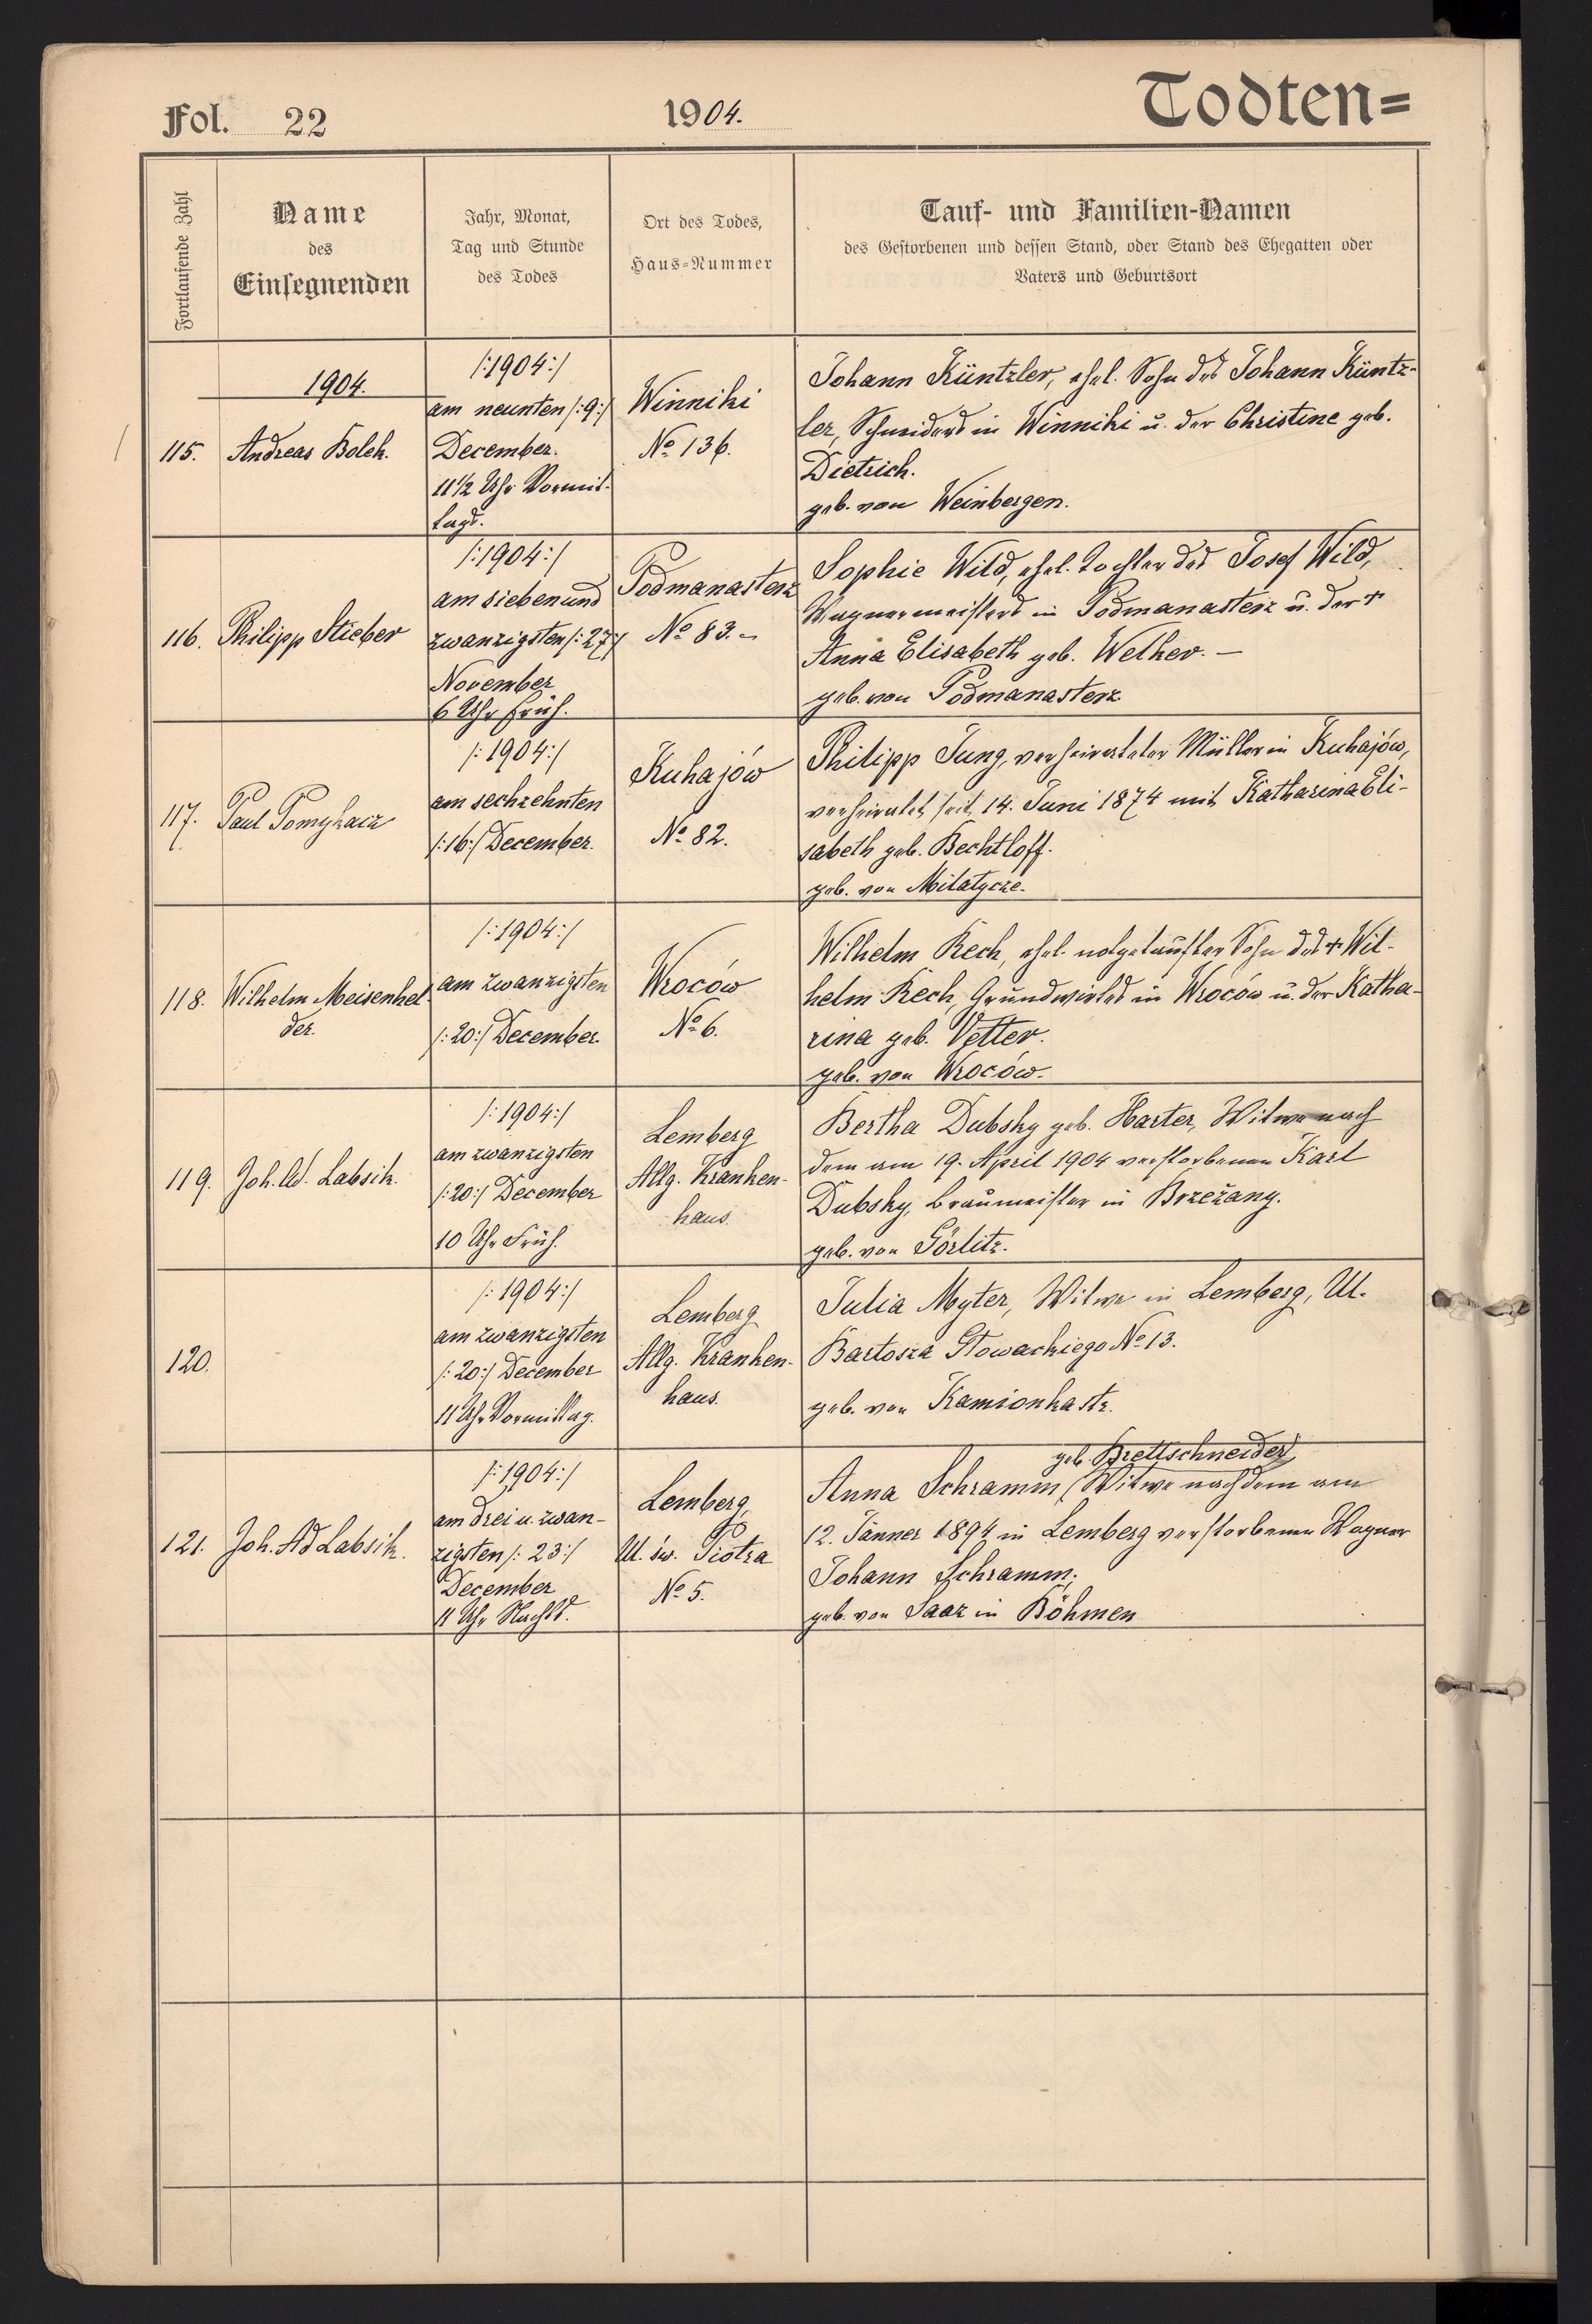 Fol. 22
1904.
Todten=
Fortlaufende Zahl
Name
des
Einsegnenden
Jahr, Monat,
Tag und Stunde
des Todes
Ort des Todes,
Haus-Nummer
Tauf- und Familien-Namen
des Gestorbenen und dessen Stand, oder Stand des Ehegatten oder
Vaters und Geburtsort
1904.
115.
Andreas Bolek.
/:1904:/
am neunten /:9:/
December.
11 1/2 Uhr Vormit-
tags.
Winniki
No 136.
Johann Küntzler, ehel. Sohn des Johann Küntz-
ler, Schneiders in Winniki u. der Christine geb.
Dietrich.
geb. von Weinbergen.
116.
Philipp Stieber
/:1904:/
am siebenund
zwanzigsten /:27:/
November
6 Uhr früh.
Podmanasterz
No 83.
Sophie Wild, ehel. Tochter des Josef Wild,
Wagnermeisters in Podmanasterz u. der +
Anna Elisabeth geb. Welker. —
geb. von Podmanasterz
117.
Paul Pomykacz
/:1904:/
am sechzehnten
/:16:/ December.
Kuhajów
No 82.
Philipp Jung, verheirateter Müller in Kuhajów,
verheiratet seit 14. Juni 1874 mit Katharina Eli-
sabeth geb. Bechtloff.
geb. von Milatycze.
118.
Wilhelm Meisenhel-
der.
/:1904:/
am zwanzigsten
/:20:/ December.
Wroców
No 6.
Wilhelm Rech, ehel. notgetaufter Sohn des + Wil-
helm Rech, Grundwirtes in Wroców u. der Katha-
rina geb. Vetter.
geb. von Wroców.
119.
Joh. Ad. Labsik.
/:1904:/
am zwanzigsten
/:20:/ December
10 Uhr Früh.
Lemberg
Allg. Kranken-
haus.
Bertha Dubsky geb. Harter, Witwe nach
dem am 19. April 1904 verstorbenen Karl
Dubsky, Braumeister in Brzeżany.
geb. von Görlitz.
120.
/:1904:/
am zwanzigsten
/:20:/ December
11 Uhr Vormittag.
Lemberg
Allg. Kranken-
haus.
Julia Myter, Witwe in Lemberg, Ul.
Bartosza Głowackiego No 13.
geb. von Kamionka str.
121.
Joh. Ad Labsik.
/:1904:/
am drei u. zwan-
zigsten /:23:/
December
11 Uhr Nachts.
Lemberg,
Ul. św. Piotra
No 5.
geb. Brettschneider,
Anna Schramm, Witwe nach dem am
12. Jänner 1894 in Lemberg verstorbenen Wagner
Johann Schramm;
geb. von Saaz in Böhmen